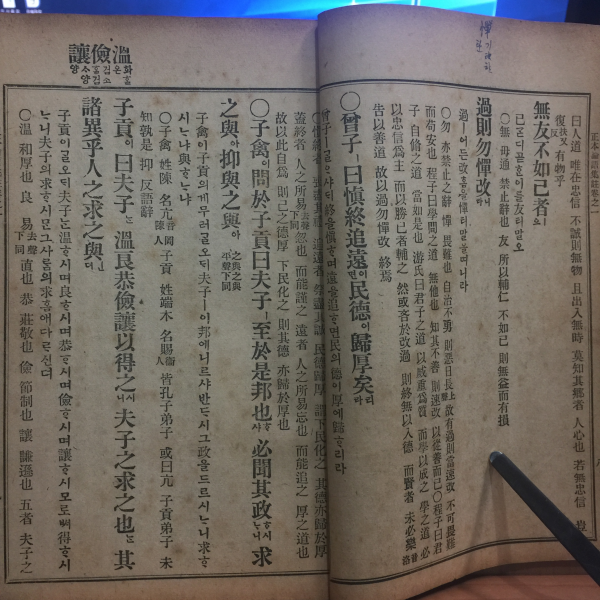 曰人道 唯在忠信 不誠則無物 且出入無時 莫知其鄕者 人心也 若無忠信 豈
復扶又反有物乎
無友不如己者오
己ᄀᆞᆮ디몯ᄒᆞᆫ이를友티말오
○無 毋通 禁止辭也 友 所以輔仁 不如己 則無益而有損
過則勿憚改니라
過ㅣ어든改홈을憚티말을띠니라
○勿 亦禁止之辭 憚 畏難也 自治不勇 則惡日長上聲 故有過則當速改 不可畏難
而苟安也 程子曰學問之道 無他也 知其不善 則速改 以從善而已○程子曰君
子 自脩之道 當如是也 游氏曰君子之道 以威重爲質 而學以成之 學之道 必
以忠信爲主 而以勝己者輔之 然或吝於改過 則終無以入德 而賢者 未必樂音洛
告以善道 故以過勿憚改 終焉
○曾子ㅣ曰愼終追遠이면民德이歸厚矣리라
曾子ㅣᄀᆞᆯᄋᆞ샤ᄃᆡ終을愼ᄒᆞ며遠을追ᄒᆞ면民의德이厚에歸ᄒᆞ리라
民德歸厚 謂下民化之 其德亦歸於厚
蓋終者 人之所易去聲下同忽也 而能謹之 遠者 人之所易忘也 而能追之 厚之道也
故以此自爲 則己之德厚 下民化之 則其德 亦歸於厚也
○子禽이問於子貢曰夫子ㅣ至於是邦也ᄒᆞ샤必聞其政ᄒᆞ시ᄂᆞ니求
之與아抑與之與아之與之與平聲下同
子禽이子貢의게무러ᄀᆞᆯ오ᄃᆡ夫子ㅣ이邦에니르샤반ᄃᆞ시그政을드르시ᄂᆞ니求ᄒᆞ
시ᄂᆞ냐與ᄒᆞᄂᆞ냐
○子禽 姓陳 名亢音岡陳人 子貢 姓端木 名賜衛人 皆孔子弟子 或曰亢 子貢弟子 未
知孰是 抑 反語辭
子貢이曰夫子ᄂᆞᆫ溫良恭儉讓以得之시니夫子之求之也ᄂᆞᆫ其
諸異乎人之求之與ᅟᅵᆫ뎌
子貢이ᄀᆞᆯ오ᄃᆡ夫子ᄂᆞᆫ溫ᄒᆞ시며良ᄒᆞ시며恭ᄒᆞ시며儉ᄒᆞ시며讓ᄒᆞ시모로ᄡᅥ得ᄒᆞ시
ᄂᆞ니夫子의求ᄒᆞ시믄그사ᄅᆞᆷ의求홈에다ᄅᆞ신뎌
○溫 和厚也 良 易去聲下同直也 恭 莊敬也 儉 節制也 讓 謙遜也 五者 夫子之
溫儉讓